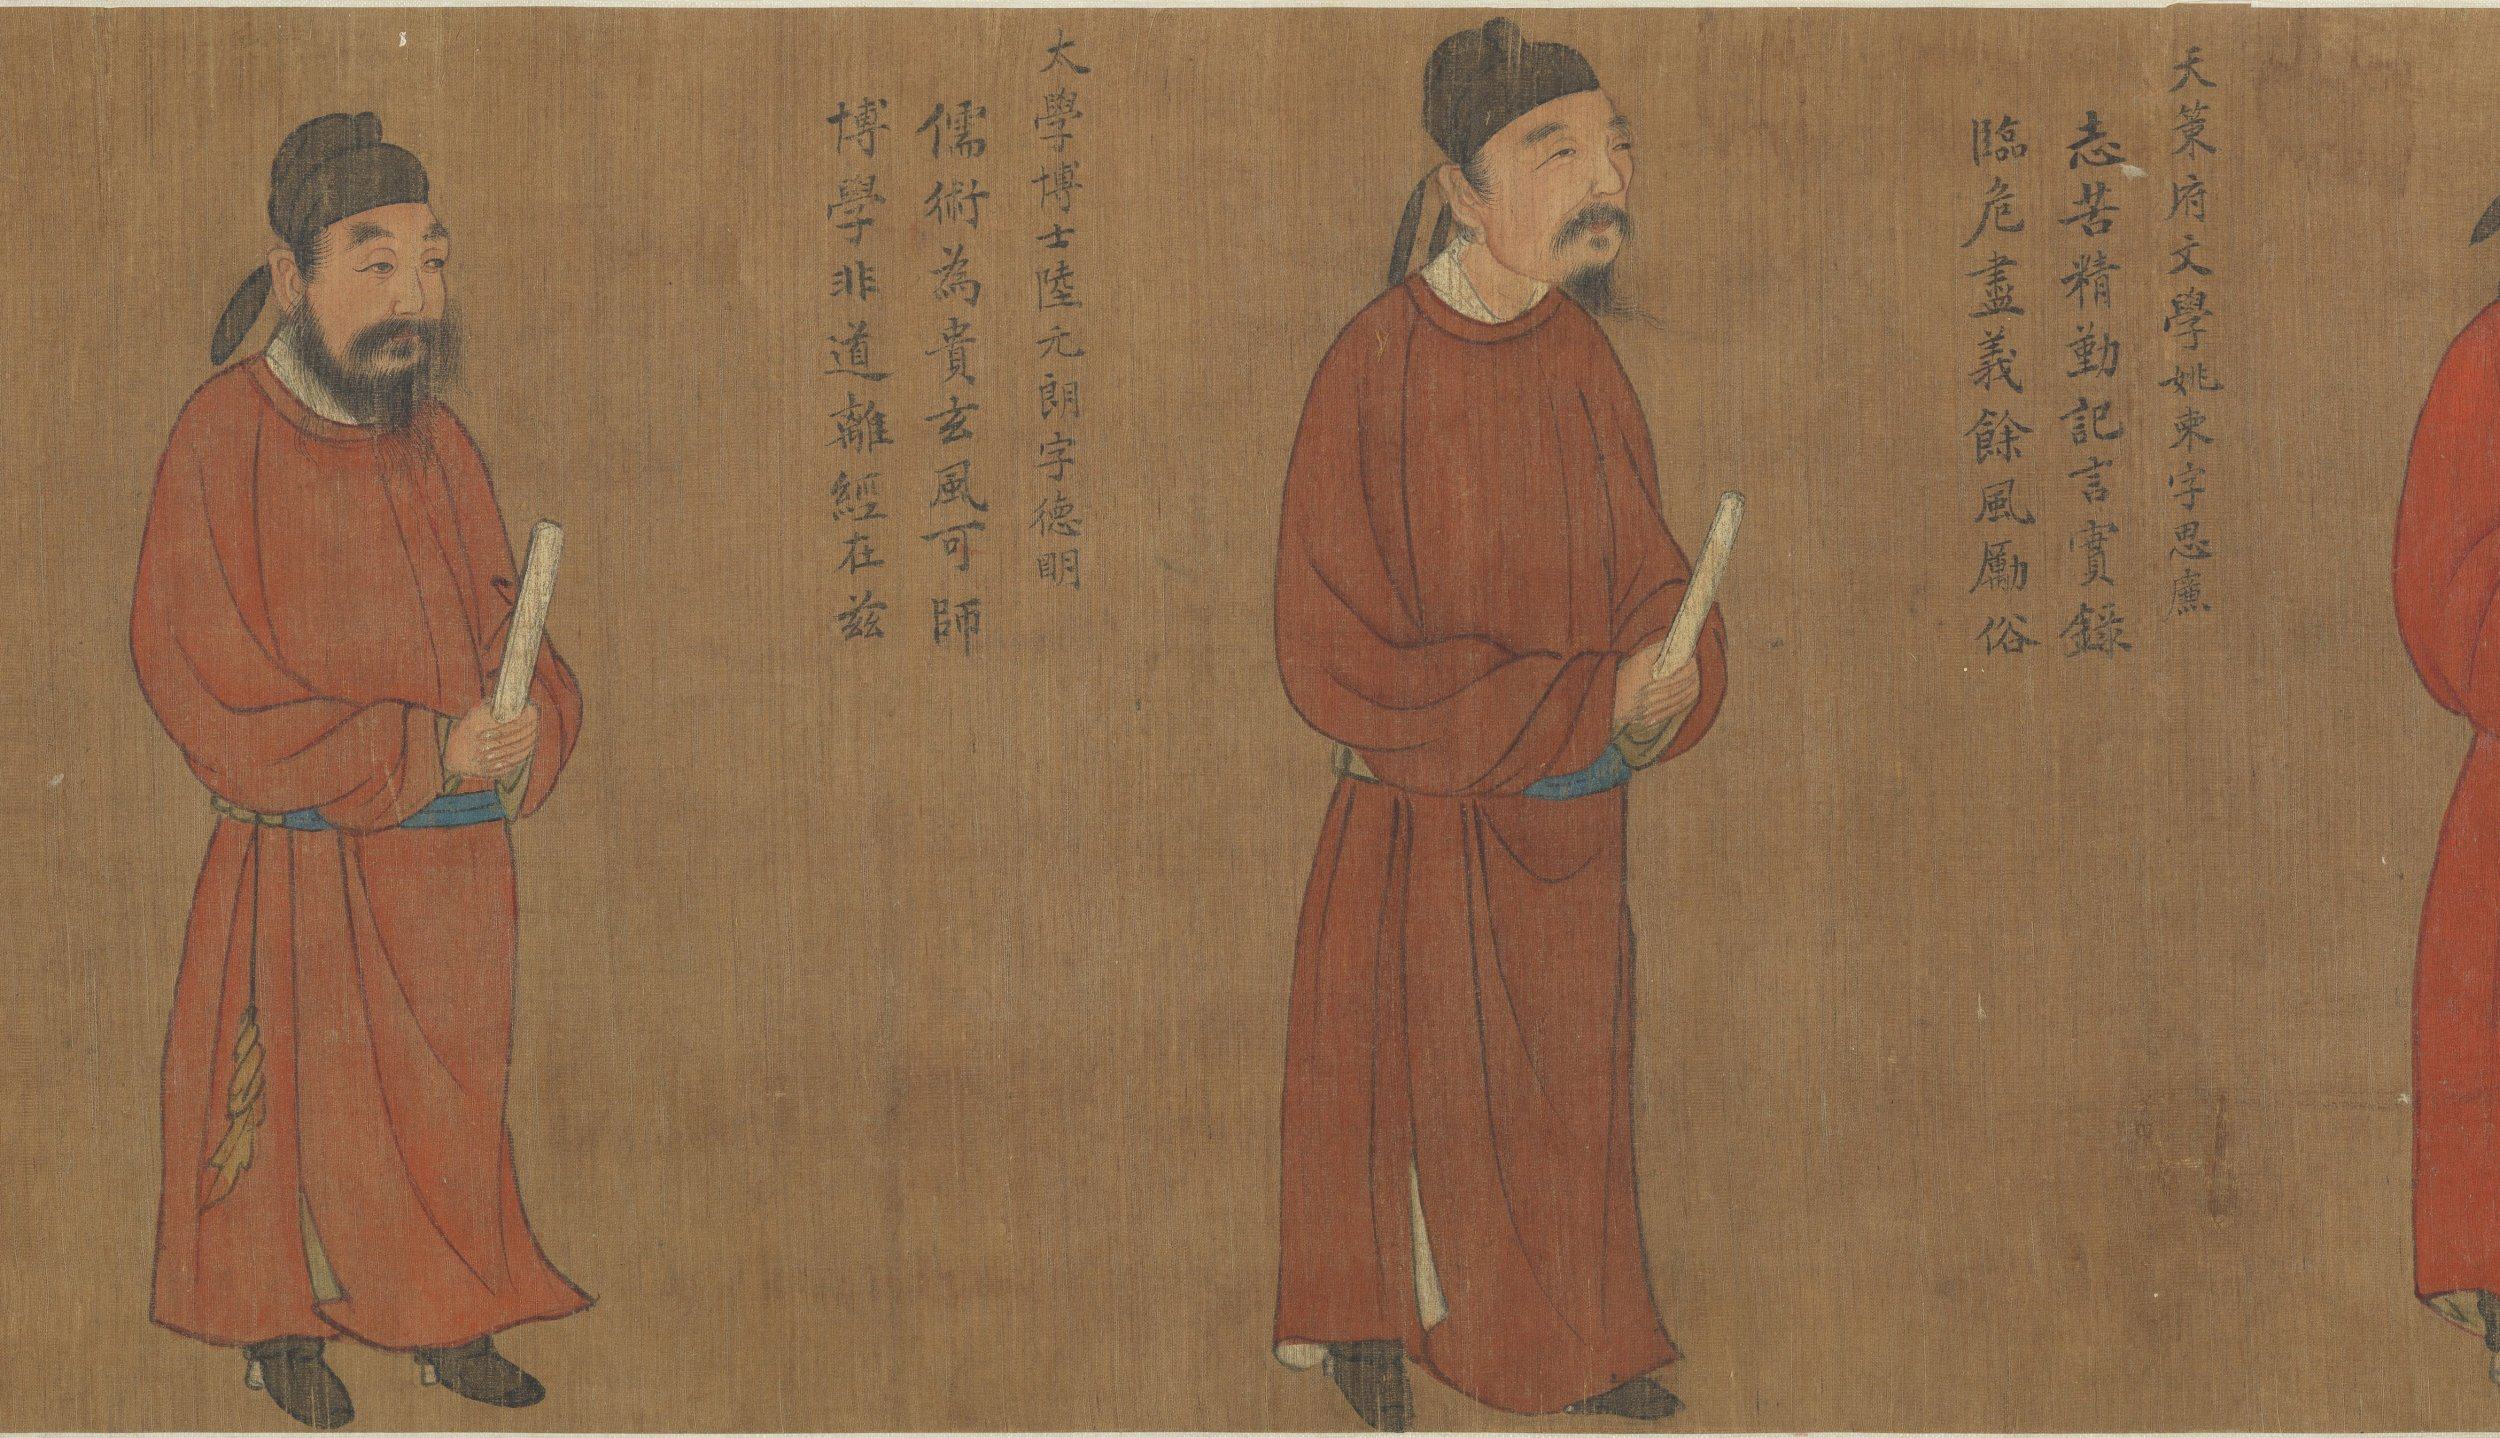 天策府文學姚柬字思廉
志苦精勤記言實錄
臨危盡義餘風勵俗
太學博士陸元朗字德明
儒術為貴玄風可師
博學非道離經在茲